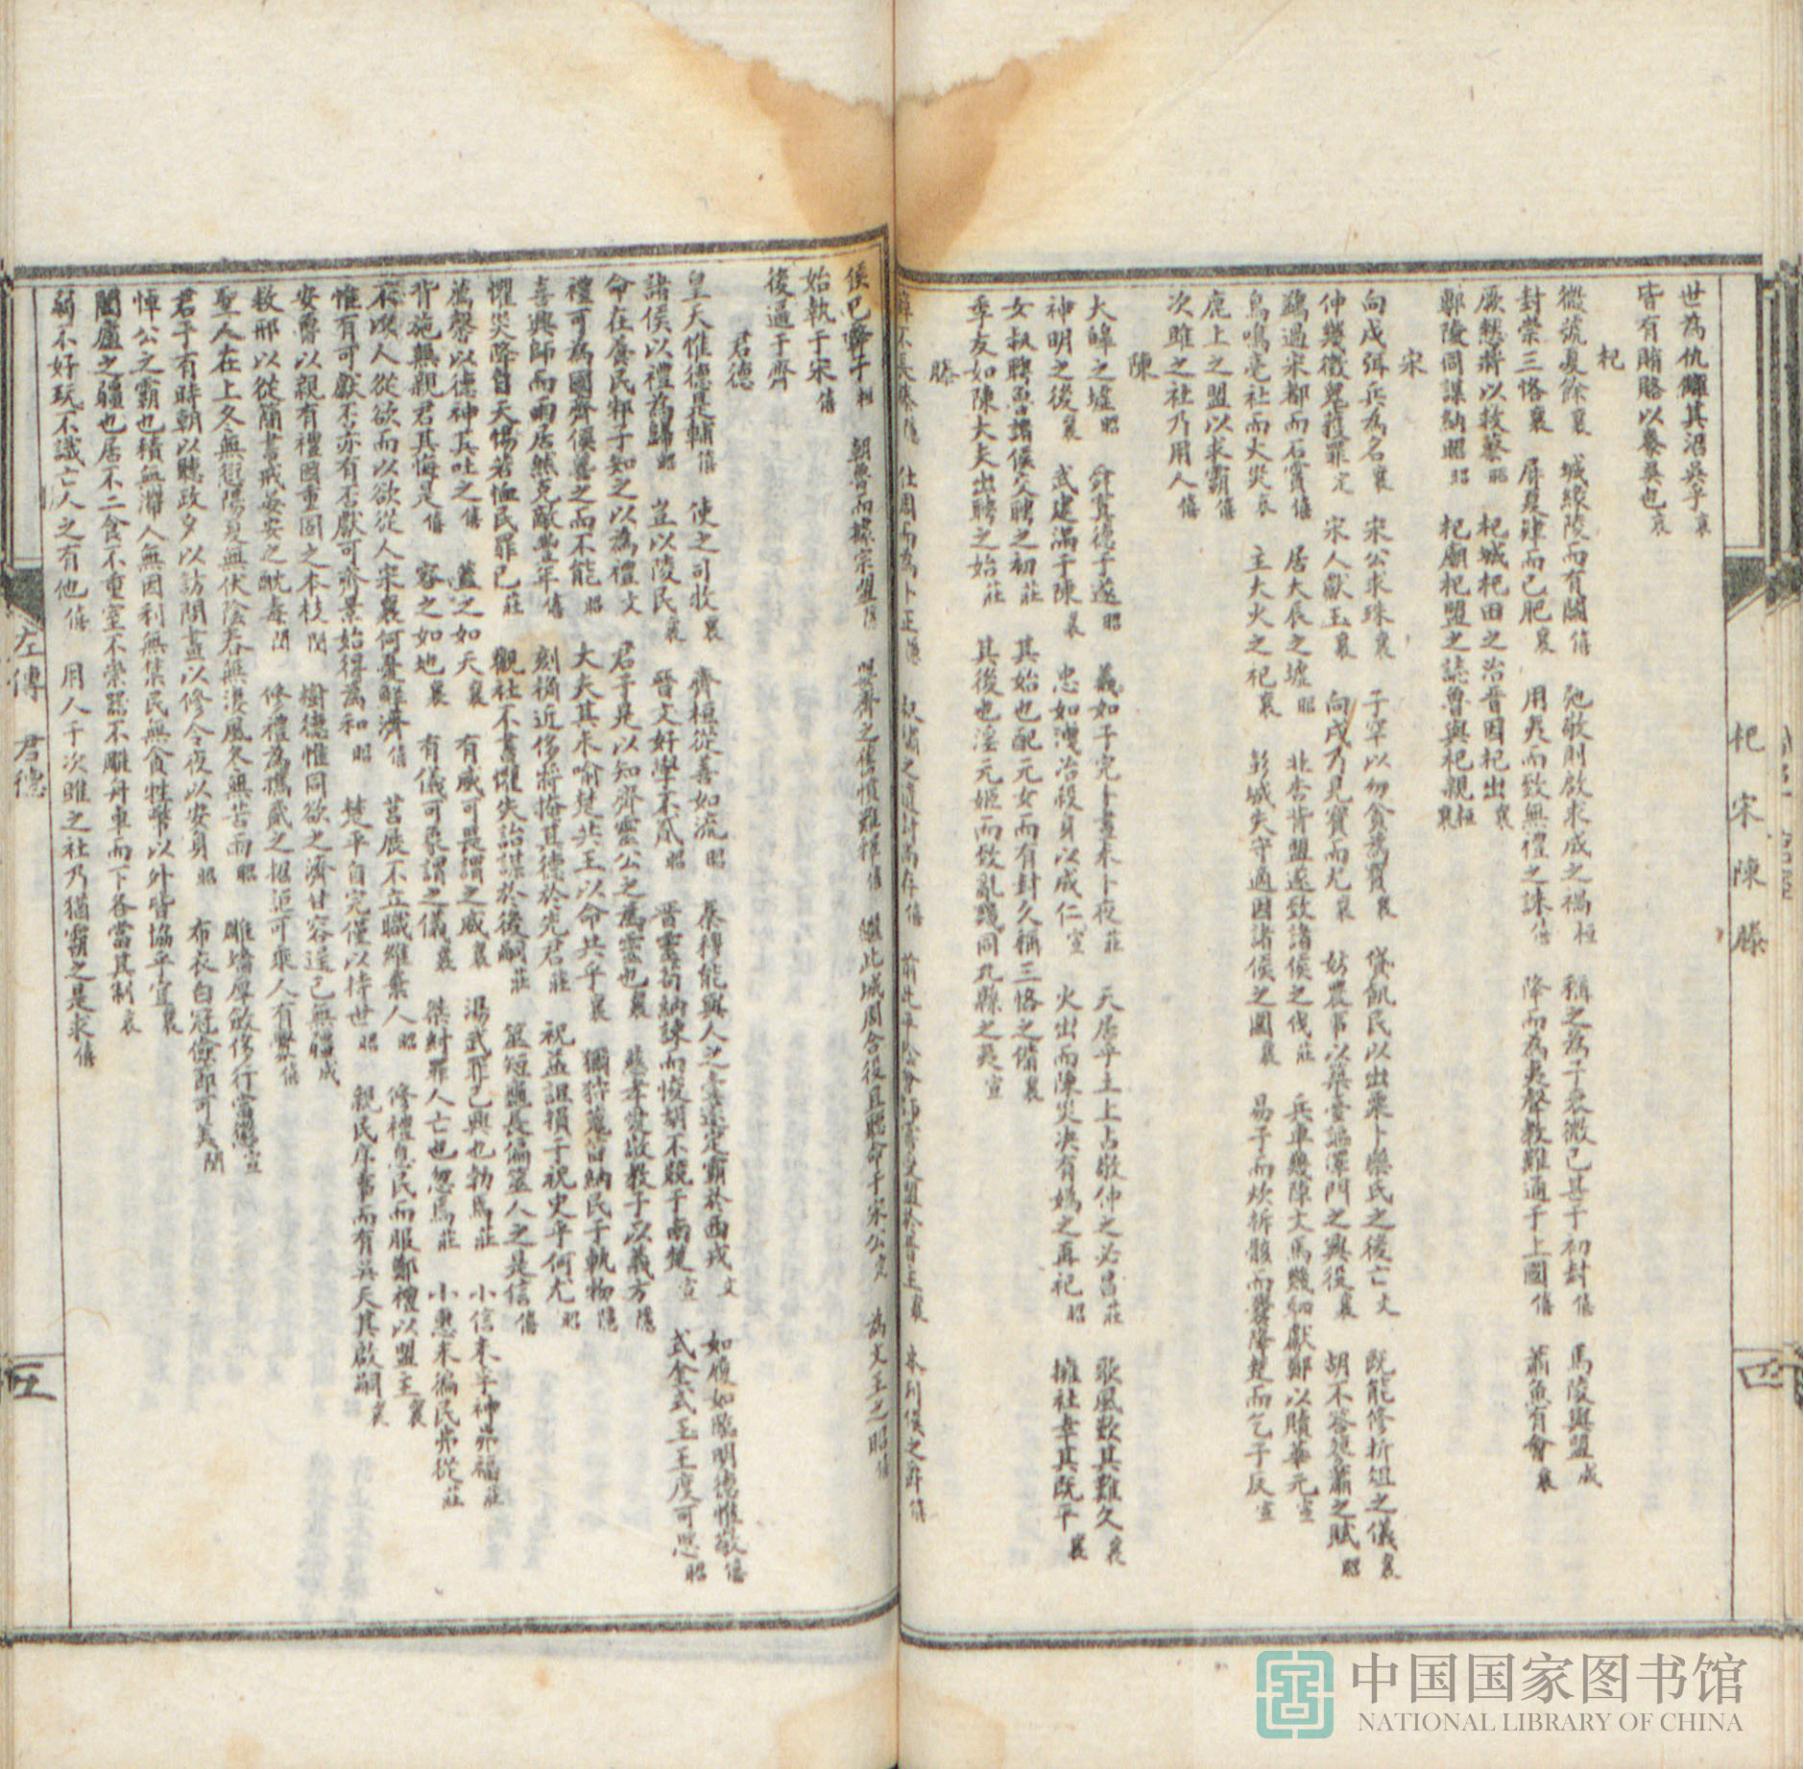 世為仇讎其沼吳乎哀
皆有賄賂以養吳也哀
杞
城緣陵而有闕僖 弛敬則啟求成之禍桓 稱之為子衰微已甚于初封僖 馬陵與盟成
封崇三恪襄 屏夏肄而已肥襄 用夷而致無禮之誅僖 降而為夷聲教難通于上國僖 蕭魚有會襄
厥憖將以救蔡昭 杞城杞田之治晉因杞出襄
鄟陵同謀納昭昭 杞廟杞盟之誌魯與杞親桓襄
宋
向戌弭兵為名襄 宋公求珠襄 子罕以勿貪為寶襄 貸飢民以出粟卜樂氏之後亡文 既能修折俎之儀襄
仲幾徵鬼獲罪定 宋人獻玉襄 向戌乃見寶而尤襄 妨農事以築臺謳澤門之興役襄 胡不答蓼蕭之賦昭
鷁過宋都而石霣僖 居大辰之墟昭 北杏背盟遂致諸侯之伐莊 兵車幾陣文馬幾駟獻鄭以贖華元宣
鳥鳴亳社而大災襄 主大火之祀襄 彭城失守適因諸侯之圍襄 易子而炊析骸而爨降楚而乞子反宣
鹿上之盟以求霸僖
次睢之社乃用人僖
陳
大皥之墟昭 舜寘德于遂昭 義如子完卜晝未卜夜莊 天居乎土上占敬仲之必昌莊
神明之後襄 武建滿于陳襄 忠如洩冶殺身以成仁宣 火出而陳災決有媯之再祀昭 擁社幸其既平襄
女叔聘魯諸侯交聘之初莊 其始也配元女而有封久稱三恪之備襄
季友如陳大夫出聘之始莊 其後也淫元姬而致亂幾同九縣之夷宣
滕
侯已 始執于宋僖
後逼于齊
君德
皇天惟德是輔僖 使之司牧襄 齊桓從善如流昭 秦穆能與人之壹遠定霸於西戎文 如履如臨明德惟敬僖
諸侯以禮為歸昭 豈以陵民襄 晉文好學不貳昭 晉靈苟納諫而悛胡不競于南楚宣 式金式玉王度可思昭
命在養民邾子知之以為禮文 君子是以知齊靈公之為靈也襄 慈孝愛敬教子以義方隱
禮可為國齊侯善之而不能昭 大夫其未喻楚共王以命共乎襄 獮狩蒐苗納民于軌物隱
喜興師而雨居然克敵豐年僖 刻桷近侈將掩其德於先君莊 祝益詛損于祝史乎何尤昭
懼災降自天惕若恤民罪己莊 觀社不書懼失詒謀於後嗣莊 筮短龜長偏筮人之是信僖
薦馨以德神其吐之僖 蓋之如天襄 有威可畏謂之威襄 湯武罪己興也勃焉莊 小信未孚神弗福莊
背施無親君其悔是僖 容之如地襄 有儀可象謂之儀襄 桀紂罪人亡也忽焉莊 小惠未徧民弗從莊
不以人從欲而以欲從人宋襄何憂鮮濟僖 莒展不立職維棄人昭 修禮息民而服鄭禮以盟主襄
惟有可獻否亦有否獻可齊景始得為和昭 楚平自完僅以持世昭 親民序事而有吳天其啟嗣襄
安魯以親有禮國重固之本枝閔 樹德惟同欲之濟甘容逞己無疆成
救邢以從簡書戒晏安之酖毒閔 修禮為攜貳之招詎可乘人有釁僖
聖人在上冬無愆陽夏無伏陰春無淒風冬無苦雨昭 雕墻厚斂侈行當懲宣
君子有時朝以聽政夕以訪問晝以修令夜以安身昭 布衣白冠儉節可美閔
悼公之霸也積無滯人無困利無集民無貪牲幣以外皆協乎宜襄
闔廬之疆也居不二食不重室不崇器不雕舟車而下各當其制哀
弱不好玩不識亡人之有他僖 用人于次睢之社乃猶霸之是求僖
左傳 君德
五
杞宋陳滕
四
中国国家图书馆
NATIONAL LIBRARY OF CHINA